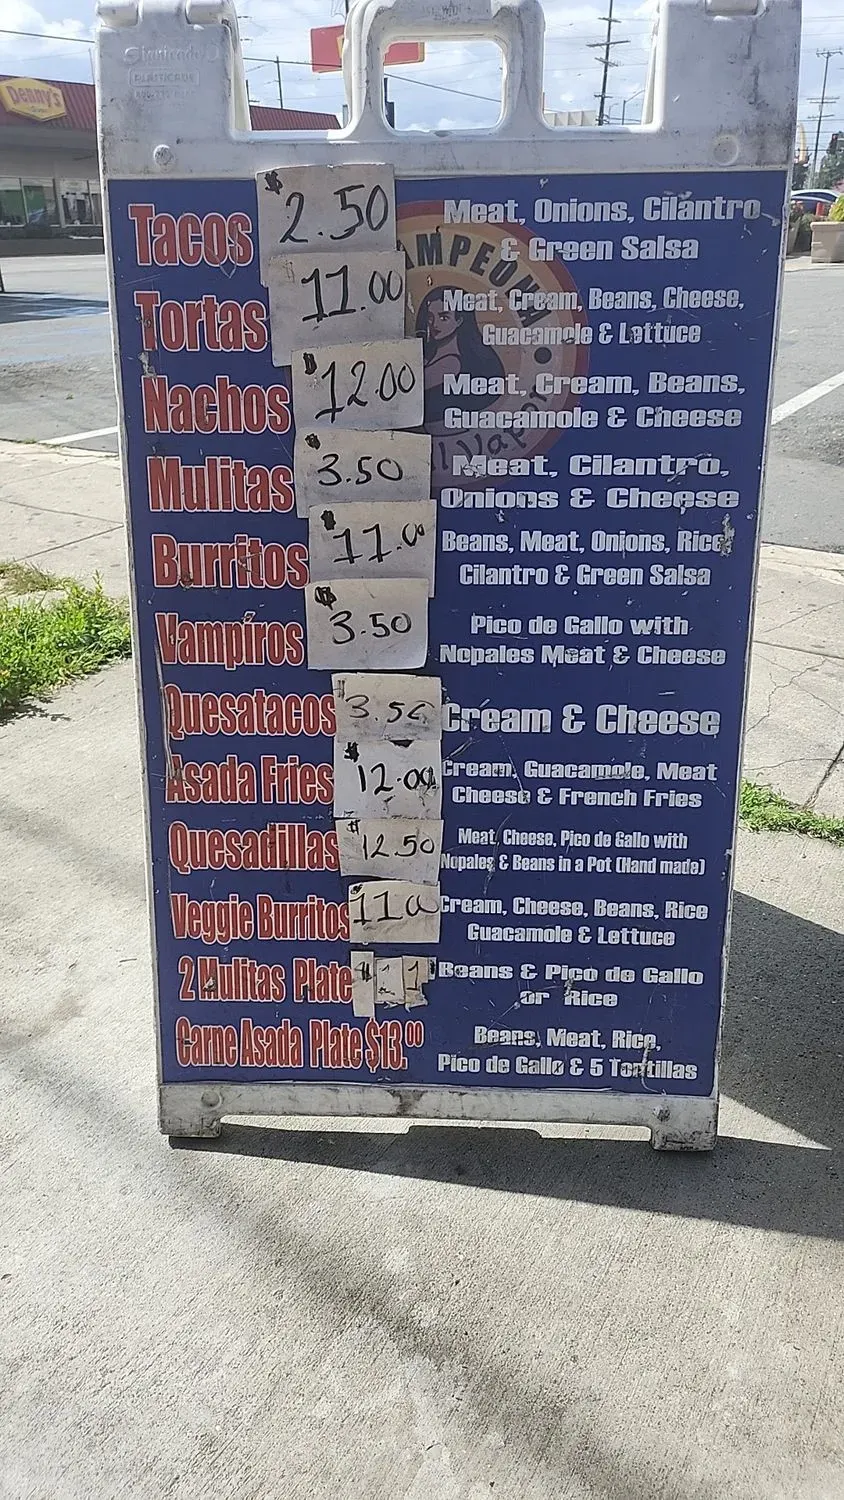 Signicade
PLASTICADE
Denny's
Tacos $2.50 Meat, Onions, Cilantro
& Green Salsa
Tortas 11.00 Meat, Cream, Beans, Cheese,
Guacamole & Lettuce
Nachos $12.00 Meat, Cream, Beans,
Guacamole & Cheese
Mulitas $3.50 Meat, Cilantro,
Onions & Cheese
Burritos $11.00 Beans, Meat, Onions, Rice
Cilantro & Green Salsa
Vampíros $3.50 Pico de Gallo with
Nopales Meat & Cheese
Quesatacos $3.50 Cream & Cheese
Asada Fries $12.00 Cream, Guacamole, Meat
Cheese & French Fries
Quesadillas $12.50 Meat, Cheese, Pico de Gallo with
Nopales & Beans in a Pot (Hand made)
Veggie Burritos $11.00 Cream, Cheese, Beans, Rice
Guacamole & Lettuce
2 Mulitas Plate Beans & Pico de Gallo
or Rice
Carne Asada Plate $13.00 Beans, Meat, Rice,
Pico de Gallo & 5 Tortillas
AMPEONA
l Vapor